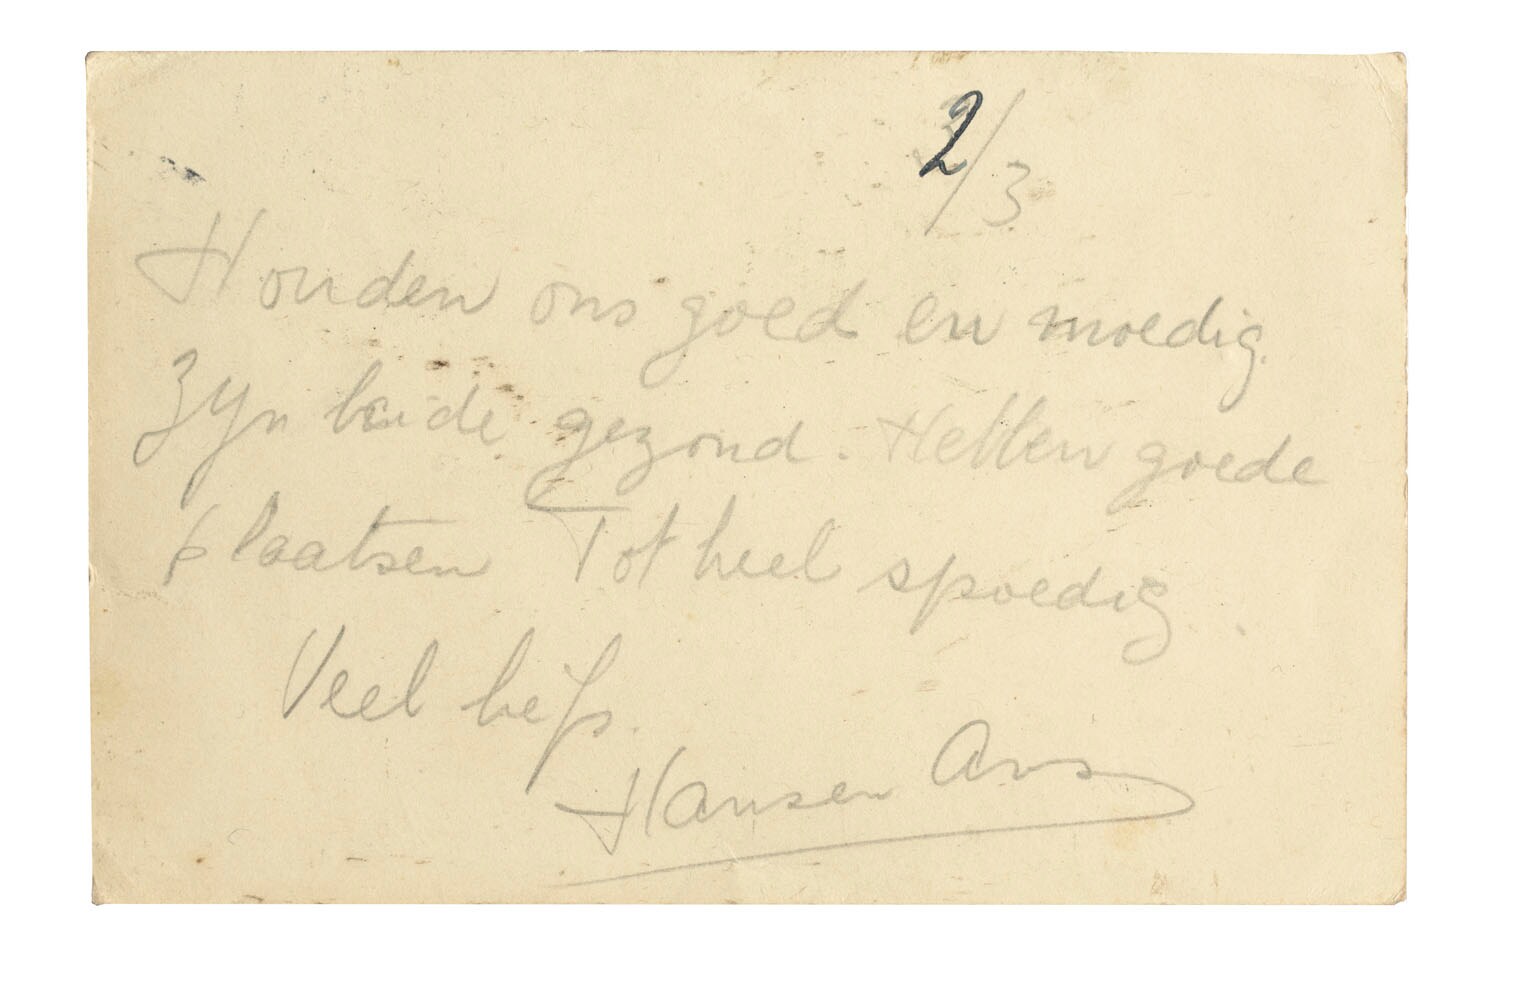 2/3
Houden ons goed en moedig.
Zijn beide gezond. Hebben goede
plaatsen Tot heel spoedig.
Veel liefs.
Hansen Ans